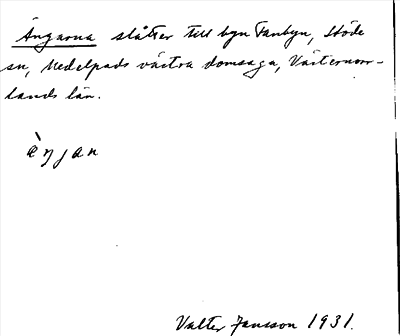 Ängarna slåtter till byn Fanbyn, Stöde
sn, Medelpads västra domsaga, Västernorr-
lands län.
Valter Jansson 1931.